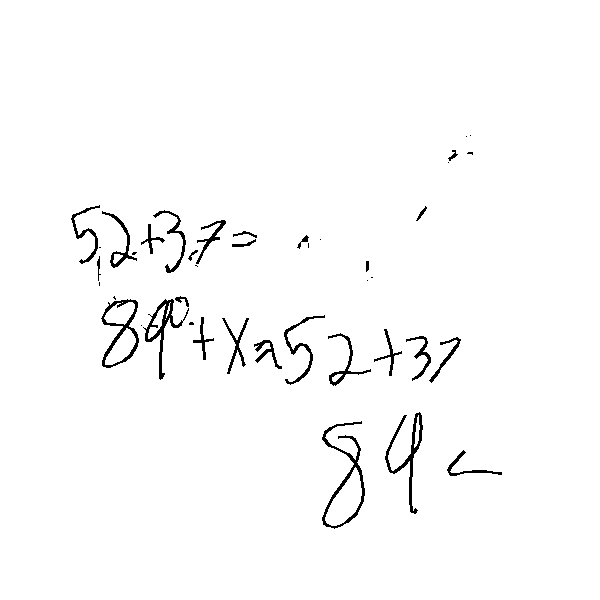 52+37=
89°+x=52+37
89<